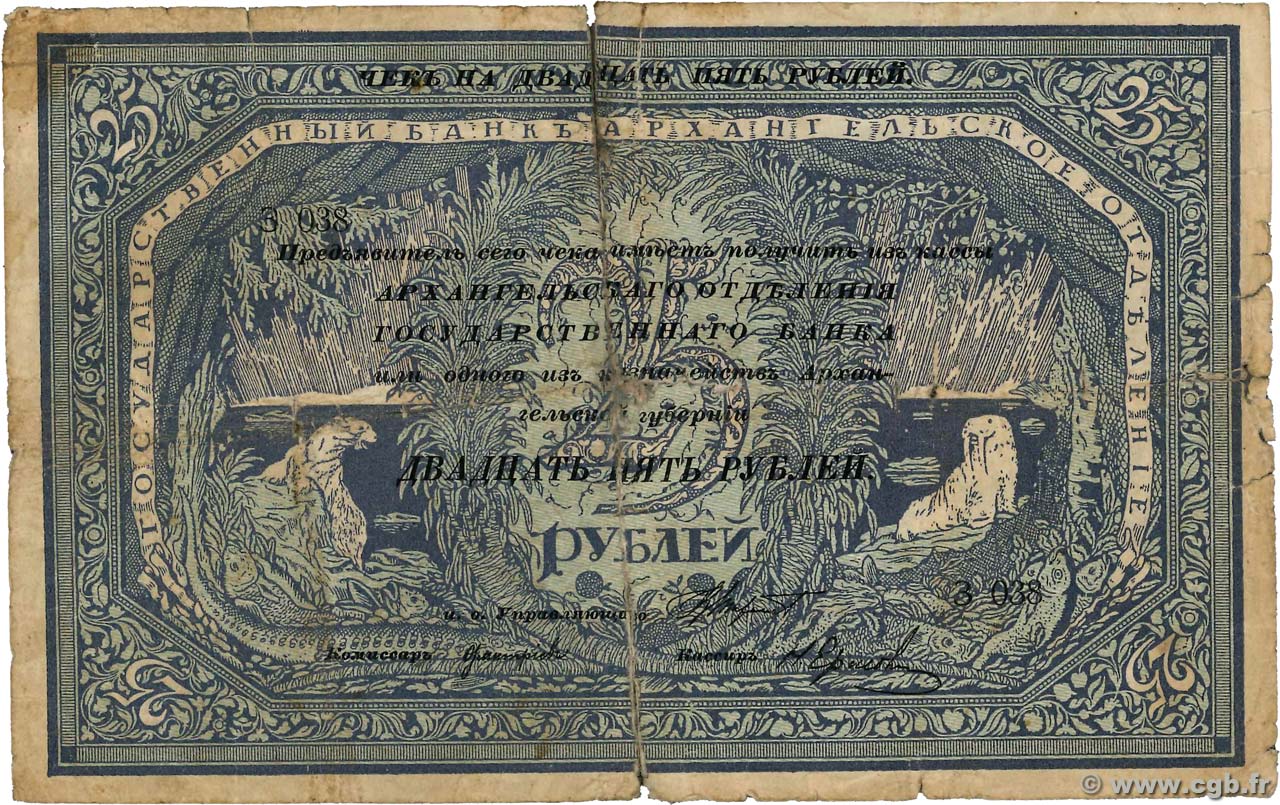 ЧЕКЪ НА ДВАДЦАТЬ ПЯТЬ РУБЛЕЙ.
25
25
ГОСУДАРСТВЕННЫЙ БАНКЪ АРХАНГЕЛЬСКОЕ ОТДѢЛЕНІЕ
З 038
Предъявитель сего чека имѣетъ получить изъ кассы
АРХАНГЕЛЬСКАГО ОТДѢЛЕНІЯ
ГОСУДАРСТВЕННАГО БАНКА
или одного изъ казначействъ Архан-
гельской губерніи
25
ДВАДЦАТЬ ПЯТЬ РУБЛЕЙ.
РУБЛЕЙ
З 038
и. о. Управляющаго
Комиссаръ
Кассиръ
25
25
© www.cgb.fr